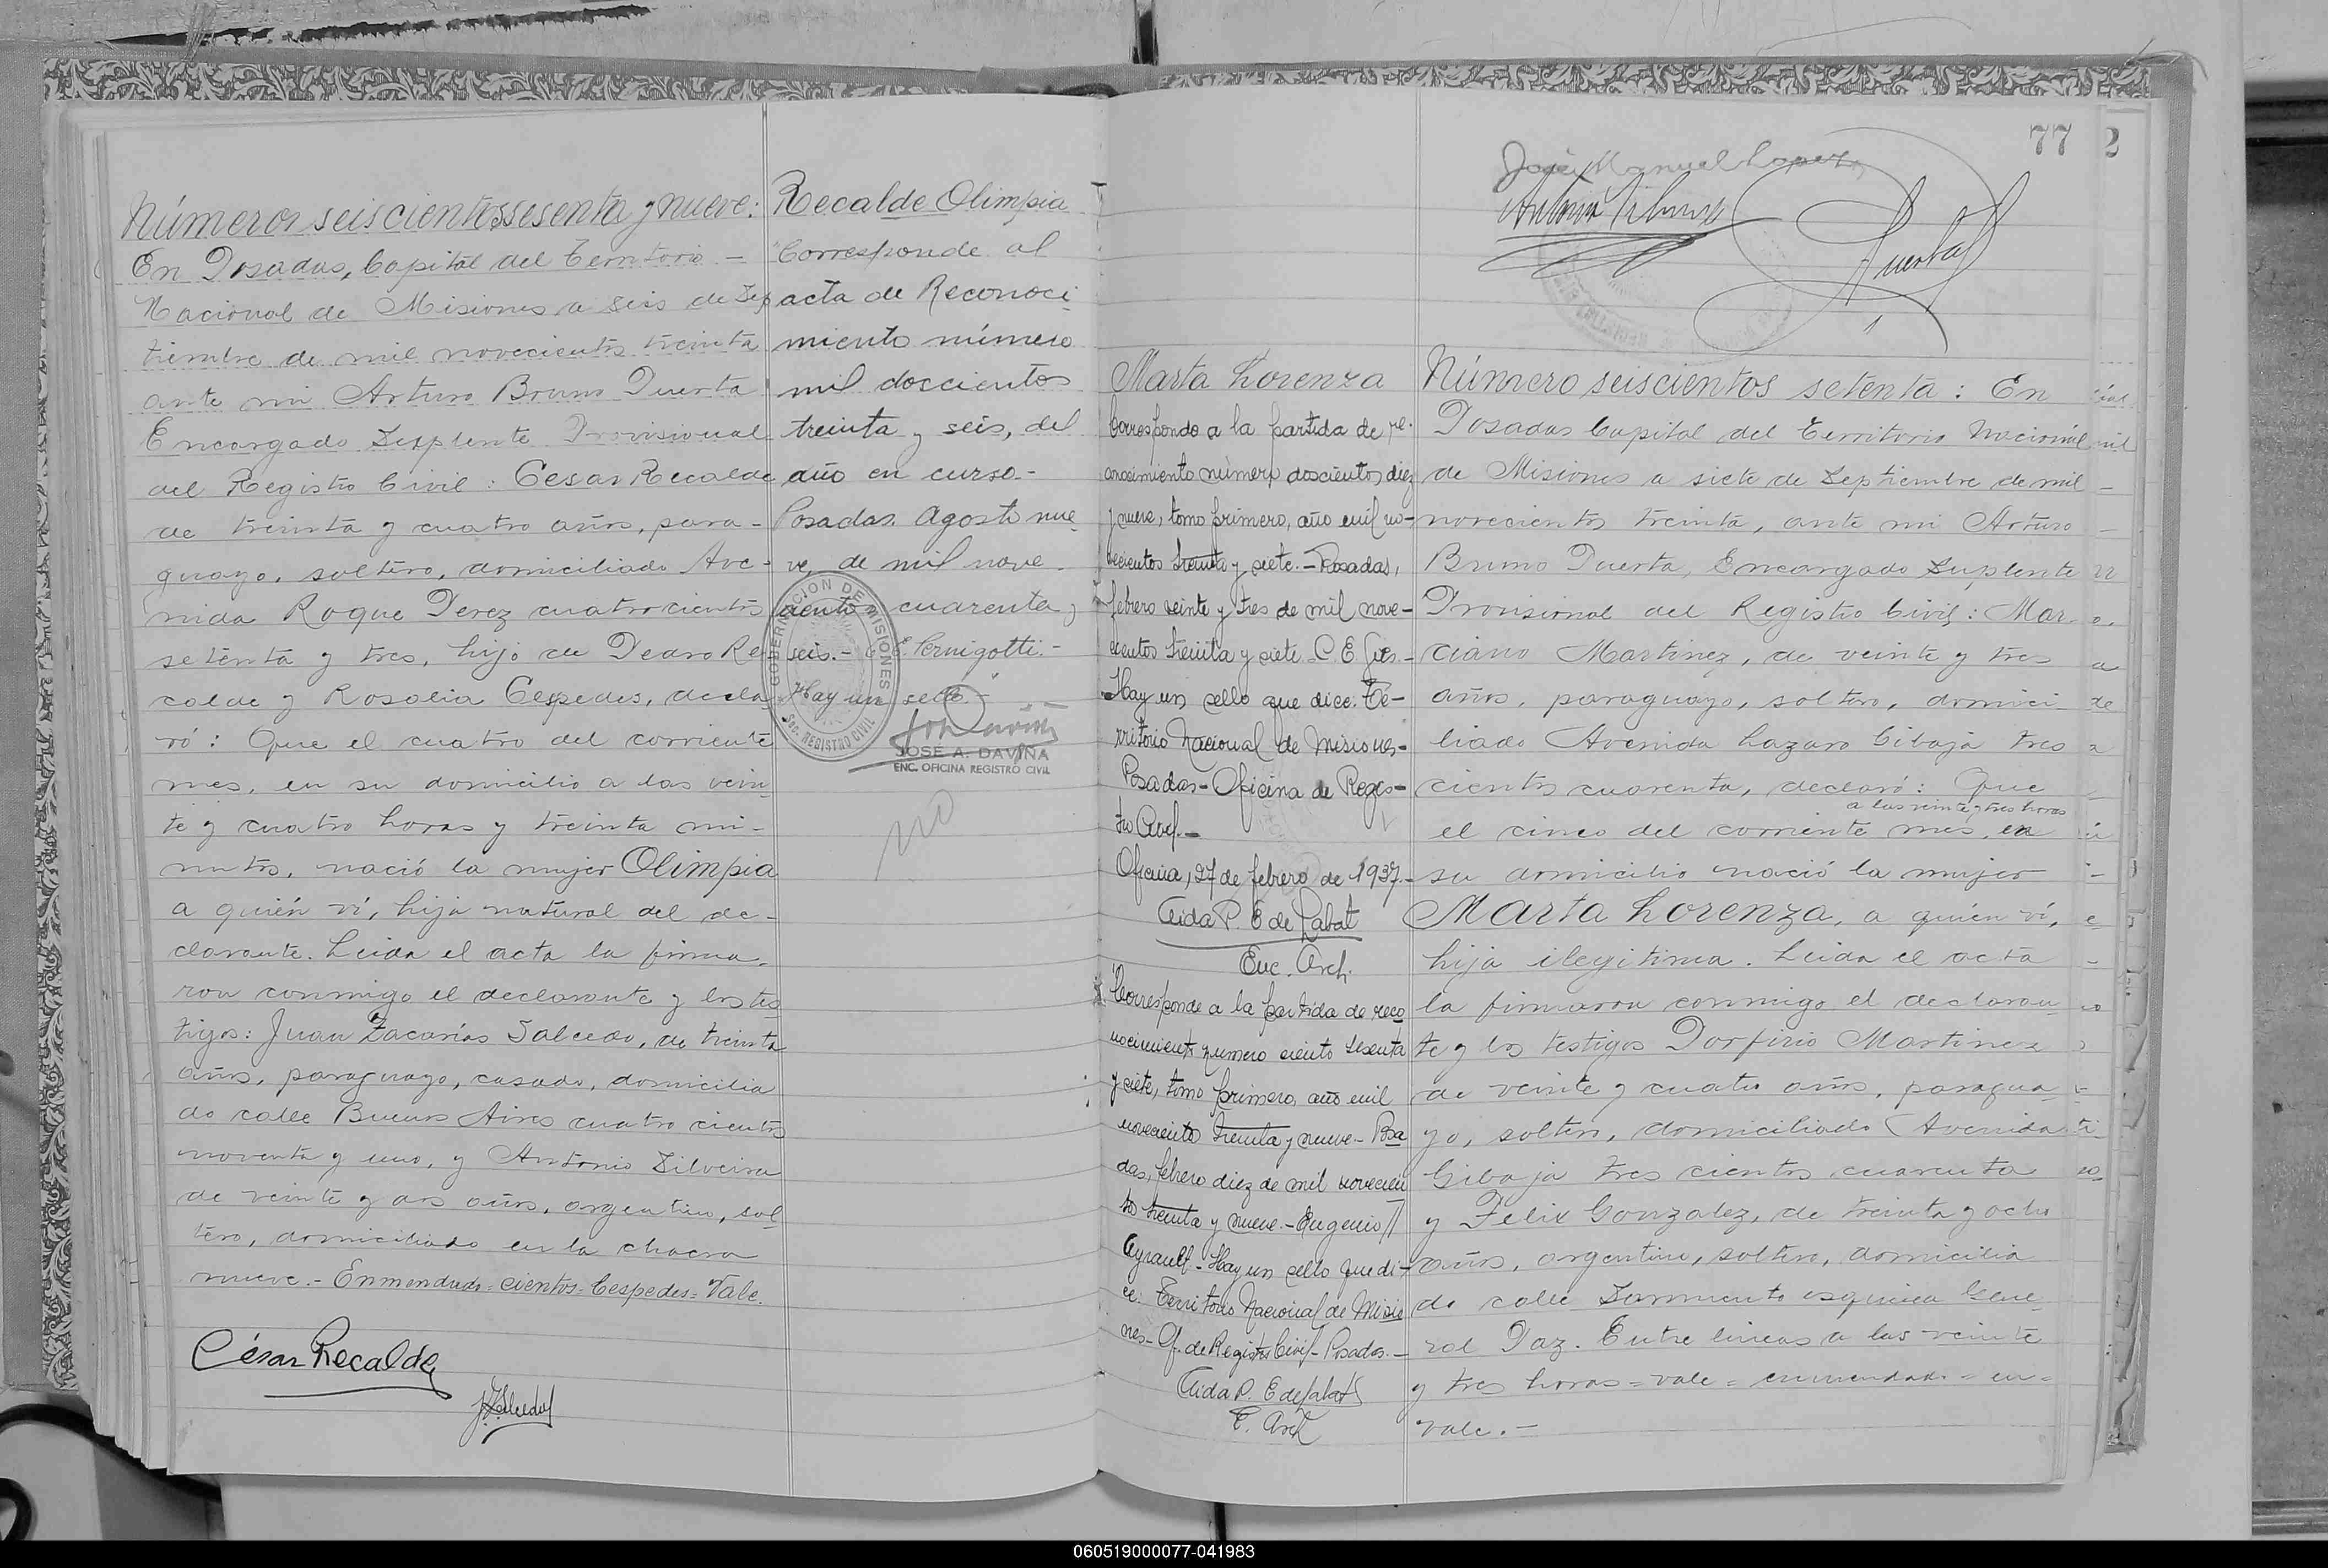 Número seiscientos sesenta y nueve:
En Posadas, Capital del Territorio -
Nacional de Misiones a seis de Sep
tiembre de mil novecientos treinta
ante mi Arturo Bruno Puerta
Encargado Suplente Provisional
del Registro Civil: Cesar Recalde
de treinta y cuatro años, para-
guayo, soltero, domiciliado Ave-
nida Roque Perez cuatrocientos
setenta y tres, hijo de Pedro Re-
calde y Rosalia Cespedes, decla
ró: Que el cuatro del corriente
mes, en su domicilio a las vein
te y cuatro horas y treinta mi-
nutos, nació la mujer Olimpia
a quién ví, hija natural del de-
clarante. Leida el acta la firma-
ron conmigo el declarante y los tes
tigos: Juan Zacarías Salcedo, de treinta
años, paraguayo, casado, domicilia
do calle Buenos Aires cuatro cientos
noventa y uno, y Antonio Silveira
de veinte y dos años, argentino, sol
tero, domiciliado en la chacra
nueve.- Enmendado= cientos= Cespedes= Vale.
César Recalde
J.Z.Salcedo
Recalde Olimpia
"Corresponde al
acta de Reconoci
miento número
mil doscientos
treinta y seis, del
año en curso.-
Posadas. Agosto nue
ve, de mil nove-
cientos cuarenta y
seis.- Cernigotti.-
Hay un sello."-
GOBERNACION DE MISIONES
Sec. REGISTRO CIVIL
JOSE A. DAVIÑA
ENC. OFICINA REGISTRO CIVIL
77
2
José Manuel Lopez
Puerta
Marta Lorenza
Corresponde a la partida de re-
conocimiento número doscientos diez
y nueve, tomo primero, año mil no-
vecientos treinta y siete.- Posadas,
febrero veinte y tres de mil nove-
cientos treinta y siete. C. E.
Hay un sello que dice: Te-
rritorio Nacional de Misiones-
Posadas- Oficina de Regis-
tro Civil.-
Oficina, 27 de febrero de 1937.-
Aida P. E de Labat
Enc. Arch.
Corresponde a la partida de reco
nocimiento numero ciento sesenta
y siete, tomo primero, año mil
novecientos treinta y nueve- Posa
das, febrero diez de mil novecien
tos treinta y nueve.- Eugenio
Ayrault- Hay un sello que di-
ce: Territorio Nacional de Misio
nes- Of. de Registro Civil- Posadas.-
Aida P. E de Labat
E. Arch
Número seiscientos setenta: En
Posadas Capital del Territorio Nacional
de Misiones a siete de Septiembre de mil
novecientos treinta, ante mi Arturo
Bruno Puerta, Encargado Suplente
Provisional del Registro Civil: Mar-
ciano Martinez, de veinte y tres
años, paraguayo, soltero, domici-
liado Avenida Lazaro Gibaja tres
cientos cuarenta, declaró: Que
a las veinte y tres horas
el cinco del corriente mes, en
su domicilio nació la mujer
Marta Lorenza, a quién ví,
hija ilegitima. Leida el acta
la firmaron conmigo el declaran
te y los testigos Porfirio Martinez
de veinte y cuatro años, paragua-
yo, soltero, domiciliado Avenida
Gibaja tres cientos cuarenta
y Felix Gonzalez, de treinta y ocho
años, argentino, soltero, domicilia
do calle Sarmiento esquina Gene
ral Paz. Entre lineas a las veinte
y tres horas= vale= enmendado= en=
vale.-
060519000077-041983